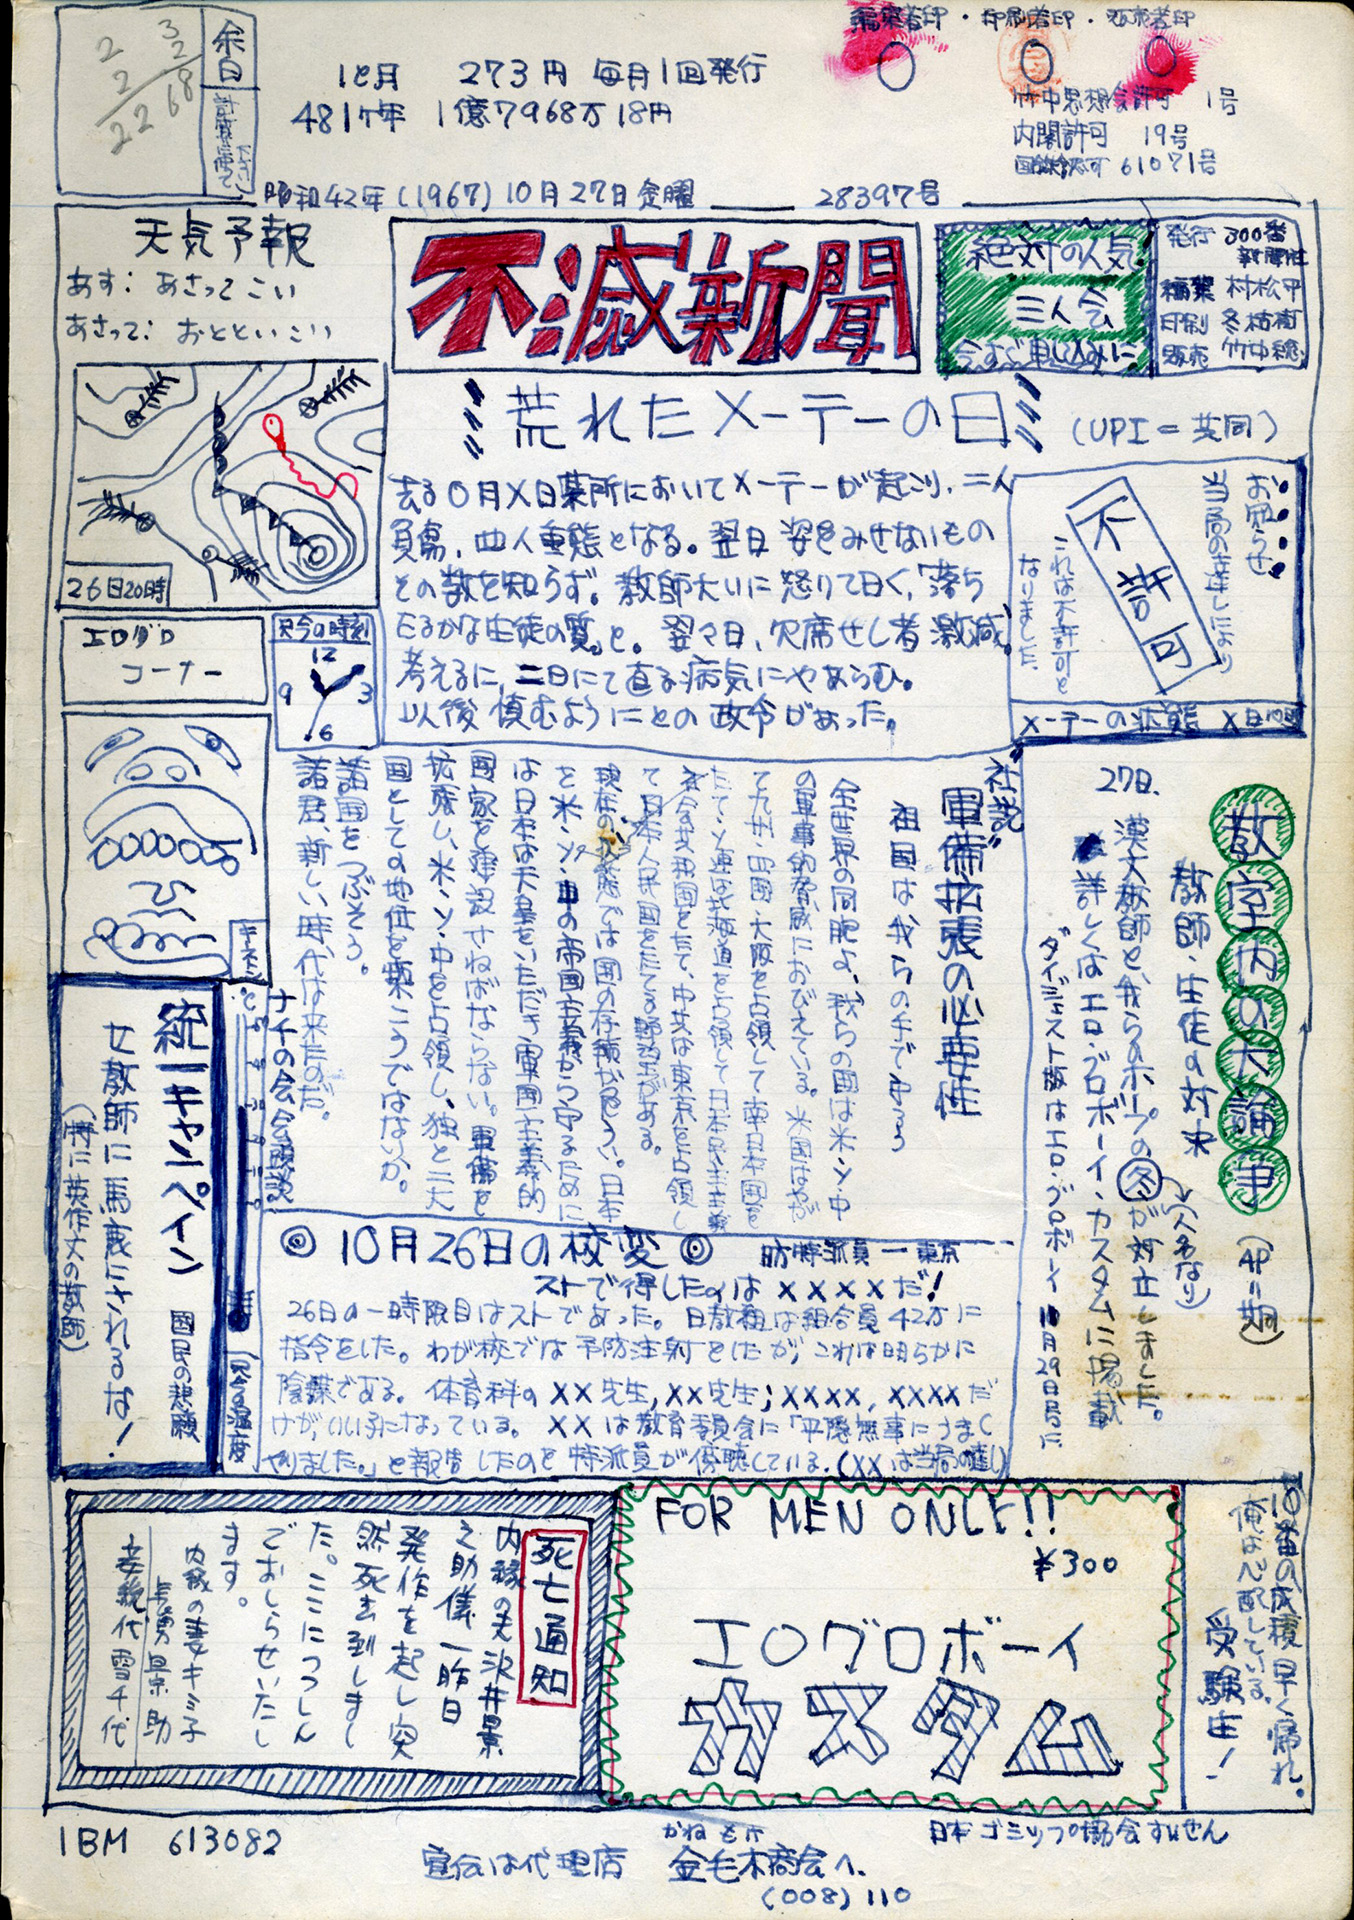 余白
計算に使って下さい
32
2268
22
編集者印・印刷者印・販売者印
1ヶ月 273円 毎月1回発行
4817ヶ年 1億7968万18円
竹中思想会許可 1号
内閣許可 19号
61071号
昭和42年(1967)10月27日金曜 28397号
天気予報
あす: あさってこい
あさって: おとといこい
26日20時
不滅新聞
絶対の人気
三人会
今すぐ申し込みに
発行 300番新聞社
編集 村松甲
印刷
販売 竹中
荒れたメーデーの日
(UPI=共同)
去る0月X日墓所においてメーデーが起こり、二人
負傷、四人重態となる。翌日 姿をみせないもの
その数を知らず。教師大いに怒りて曰く、「落ち
たるかな生徒の質」と。翌々日、欠席せし者激減。
考えるに、二日にて直る病気にやあらむ。
以後 慎むようにとの政令があった。
お知らせ
当局の達しにより
不許可
これは不許可と
なりました
メーデーの状態 X日
エログロ
コーナー
只今の時刻
12
3
6
9
キネン
社説
軍備拡張の必要性
祖国は我らの手で守ろう
全世界の同胞よ、我らの国は米・ソ・中
の軍事的脅威におびえている。米国はやが
て九州・四国・大阪を占領して南日本国を
たて、ソ連は北海道を占領して日本民主主義
社会共和国をたて、中共は東京を占領し
て日本人民国をたてる野望がある。
現在の状態では国の存続が危うい。日本
を米・ソ・中の帝国主義から守るために
は日本は天皇をいただき軍国主義的
国家を建設せねばならない。軍備を
拡張し、米・ソ・中を占領し、独と二大
国としての地位を築こうではないか。
諸国をつぶそう。
諸君、新しい時代は来たのだ。
ナチの会会長談
教室内の大論争
(AP=)
教師・生徒の対決
27日、漢文教師と、我らのホープの冬が対立しました。
(人名なり)
詳しくはエロ・グロボーイ・カスタムに掲載
ダイジェスト版はエロ・グロボーイ10月29日号に
統一キャンペイン
国民の悲願
女教師に馬鹿にされるな!
(特に英作文の教師)
℃
(只今温度
◎10月26日の校変◎ 特派員—東京
ストで得したのは××××だ!
26日の一時限目はストであった。日教組は組合員42万に
指令をした。わが校では予防注射をしたが、これは明らかに
陰謀である。体育科の××先生,××先生;××××,××××だ
けが、いい子になっている。××は教育委員会に「平穏無事にうまく
やりました。」と報告したのを特派員が傍聴している。(××は当局の達し)
死亡通知
内縁の夫沢井景
之助儀一昨日
発作を起し突
然死去致しまし
た。ここにつつしん
でおしらせいたし
ます。
内縁の妻キミ子
長男 景助
妾 代雪千代
FOR MEN ONLY!!
¥300
エログロボーイ
カスタム
10番の成績早く帰れ。
俺は心配している。
受験生!
IBM 613082
日本ゴミップ協会すいせん
宣伝は代理店 金毛木商会へ.
かねもけ
(008)110